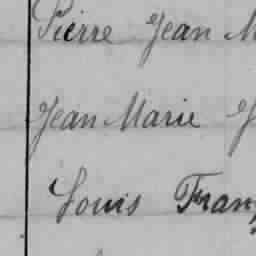 Pierre Jean M
Jean Marie
Louis Franç